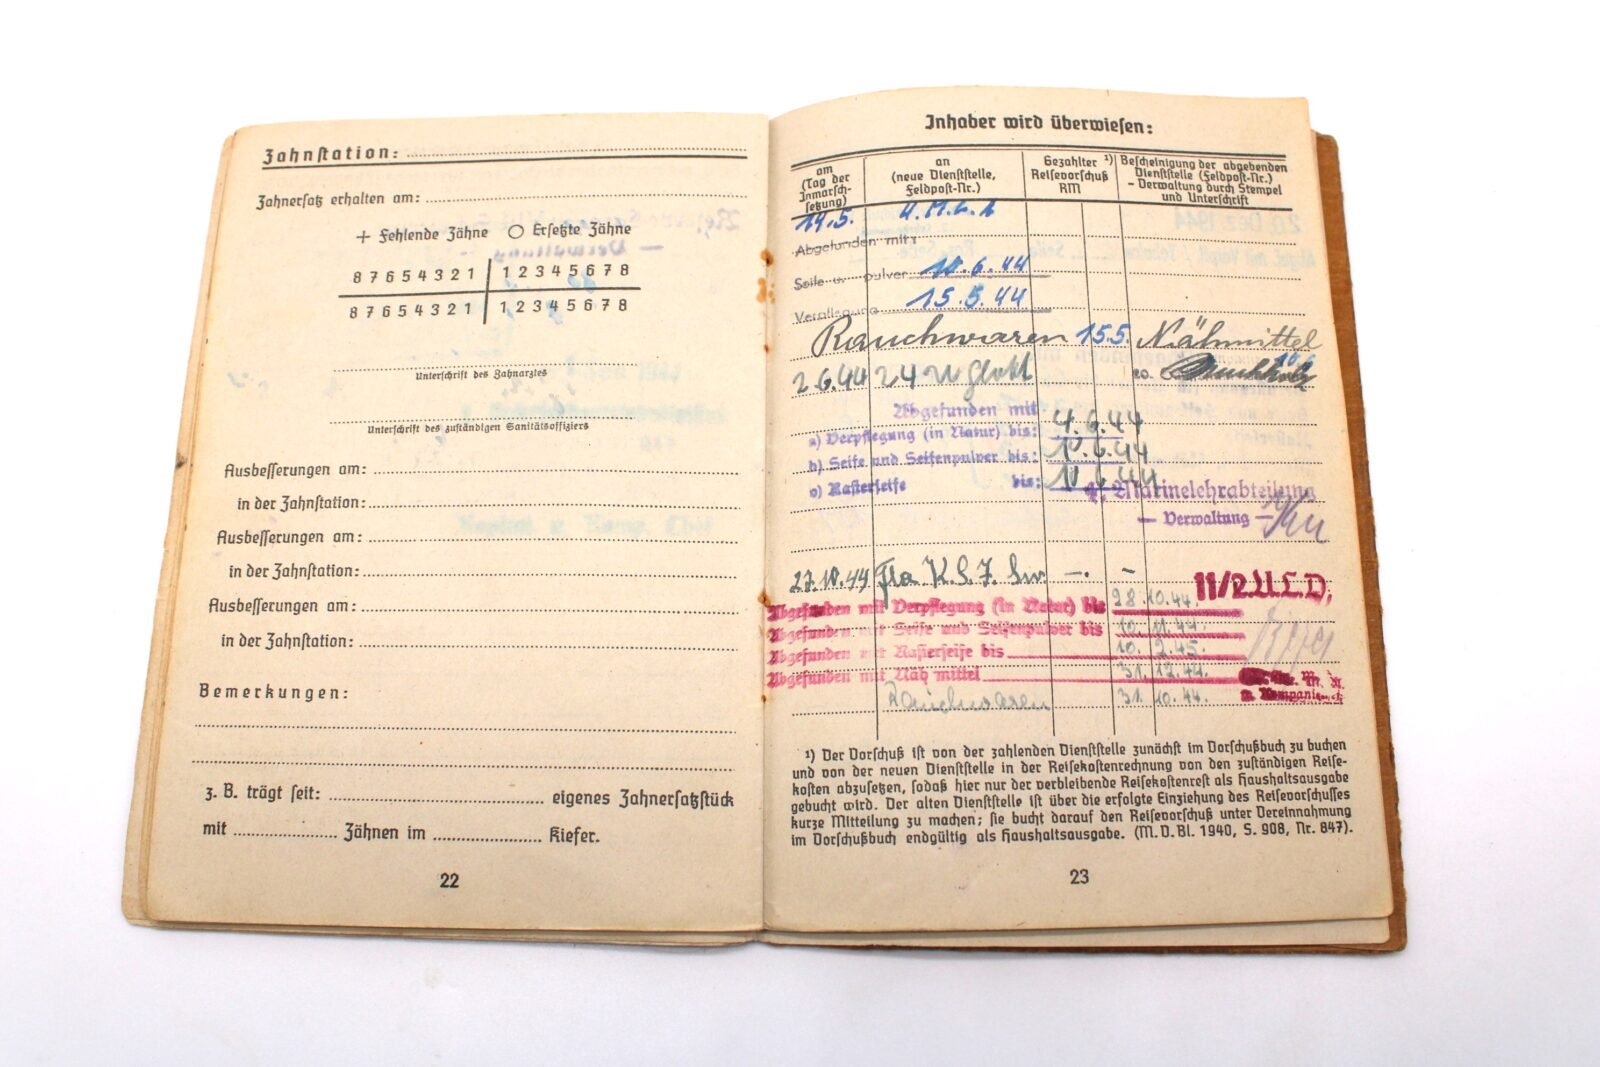 Zahnstation:
Zahnersatz erhalten am:
+ Fehlende Zähne ○ Ersetzte Zähne
8 7 6 5 4 3 2 1 | 1 2 3 4 5 6 7 8
8 7 6 5 4 3 2 1 | 1 2 3 4 5 6 7 8
Unterschrift des Zahnarztes
Unterschrift des zuständigen Sanitätsoffiziers
Ausbesserungen am:
in der Zahnstation:
Ausbesserungen am:
in der Zahnstation:
Ausbesserungen am:
in der Zahnstation:
Bemerkungen:
z. B. trägt seit: eigenes Zahnersatzstück
mit Zähnen im Kiefer.
22
Inhaber wird überwiesen:
am
(Tag der
Inmarsch-
setzung)
an
(neue Dienststelle,
Feldpost-Nr.)
Gezahlter ¹)
Reisevorschuß
RM
Bescheinigung der abgebenden
Dienststelle (Feldpost-Nr.)
- Verwaltung durch Stempel
und Unterschrift
14.5.
Abgefunden mit:
Seife u. pulver 10.6.44
Verpflegung 15.5.44
Rauchwaren 15.5. Nähmittel
2.6.44
Abgefunden mit
a) Verpflegung (in Natur) bis: 4.6.44
b) Seife und Seifenpulver bis: 10.6.44
c) Rasierseife bis: 10.6.44
Marinelehrabteilung
— Verwaltung —
27.10.44
11/2.U.L.D.
Abgefunden mit Verpflegung (in Natur) bis 28.10.44.
Abgefunden mit Seife und Seifenpulver bis 10.11.44.
Abgefunden mit Rasierseife bis 10.2.45.
Abgefunden mit Näh mittel 31.12.44.
Rauchwaren 31.10.44.
¹) Der Vorschuß ist von der zahlenden Dienststelle zunächst im Vorschußbuch zu buchen
und von der neuen Dienststelle in der Reisekostenrechnung von den zuständigen Reise-
kosten abzusetzen, sodaß hier nur der verbleibende Reisekostenrest als Haushaltsausgabe
gebucht wird. Der alten Dienststelle ist über die erfolgte Einziehung des Reisevorschusses
kurze Mitteilung zu machen; sie bucht darauf den Reisevorschuß unter Vereinnahmung
im Vorschußbuch endgültig als Haushaltsausgabe. (M. V. Bl. 1940, S. 908, Nr. 847).
23